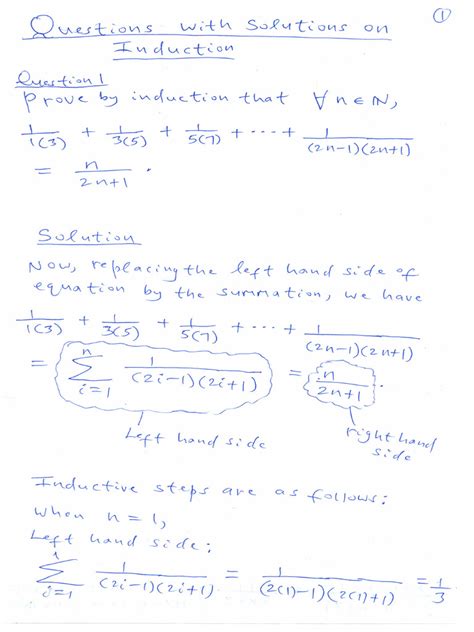 ①
Questions with Solutions on
Induction
Question 1
Prove by induction that ∀ n ∈ ℕ,
1/1(3) + 1/3(5) + 1/5(7) + ⋯ + 1/(2n-1)(2n+1)
= n/2n+1 .
Solution
Now, replacing the left hand side of
equation by the summation, we have
1/1(3) + 1/3(5) + 1/5(7) + ⋯ + 1/(2n-1)(2n+1)
= ∑_{i=1}^{n} 1/(2i-1)(2i+1) = n/2n+1 .
Left hand side
right hand
side
Inductive steps are as follows:
when n = 1,
Left hand side:
∑_{i=1}^{1} 1/(2i-1)(2i+1) = 1/(2(1)-1)(2(1)+1) = 1/3